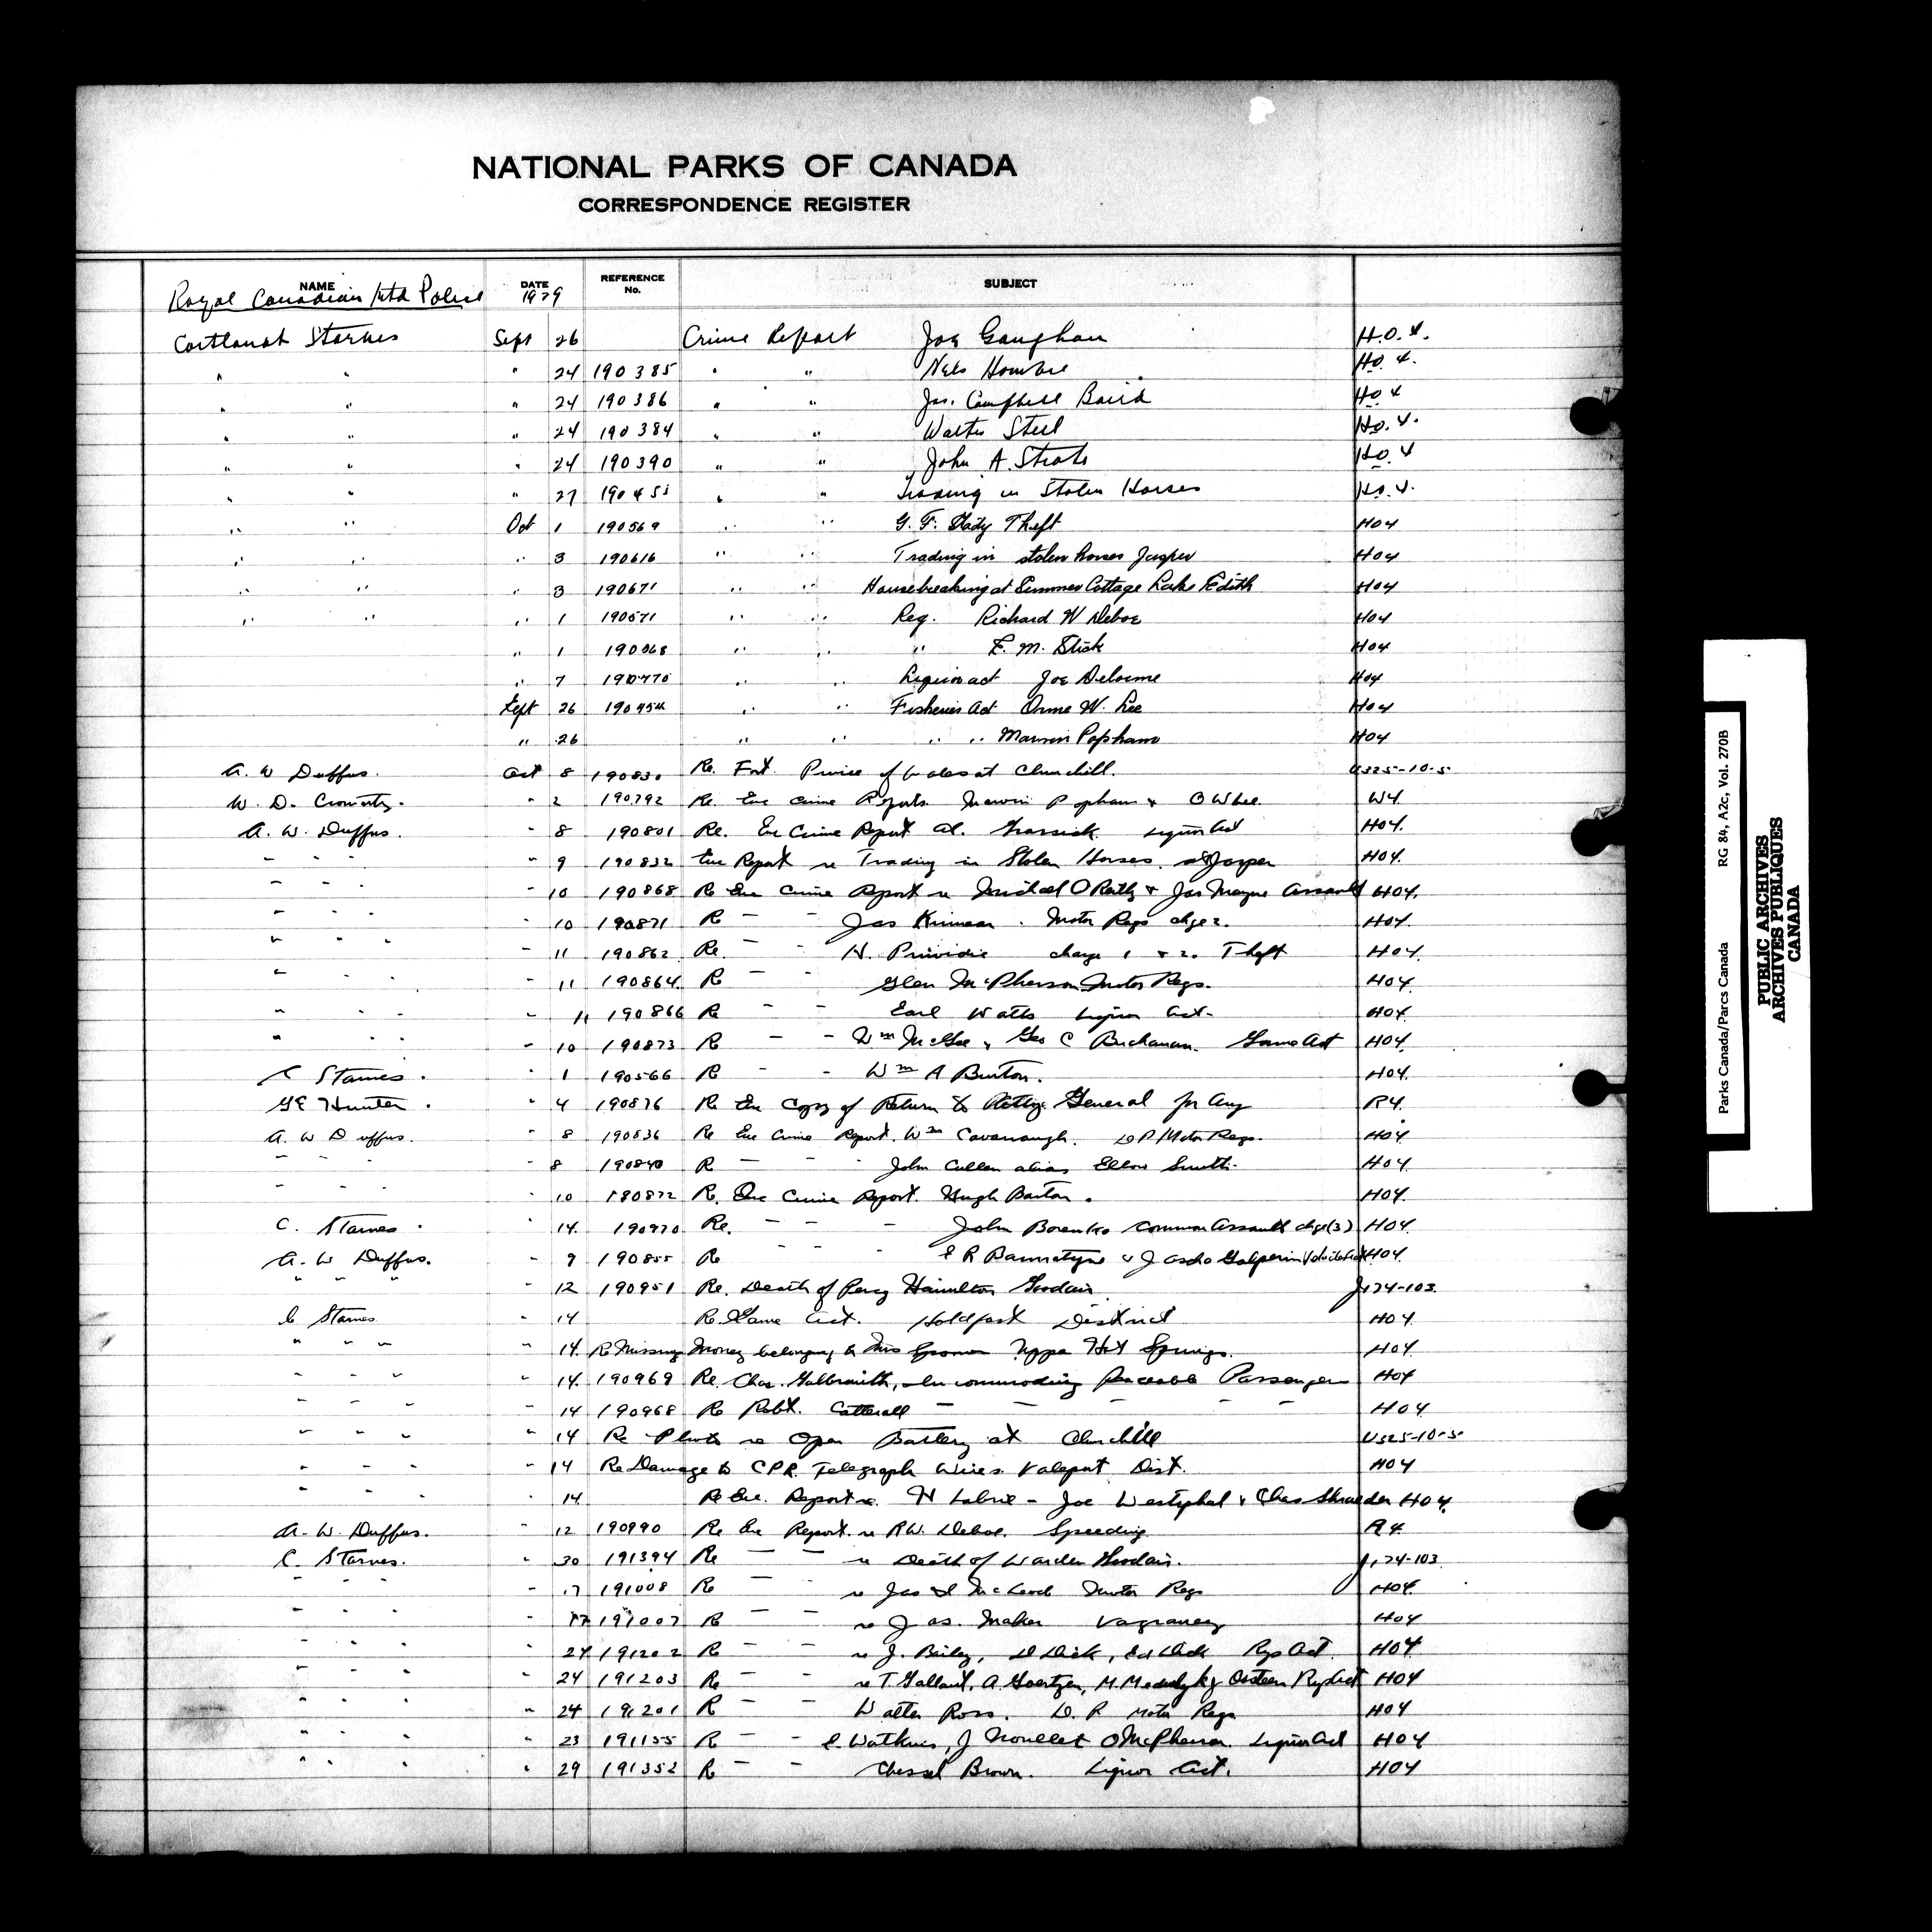 NATIONAL PARKS OF CANADA
CORRESPONDENCE REGISTER
NAME DATE REFERENCE No. SUBJECT
Royal Canadian Mtd Police 1929
Cortlandt Starnes Sept 26 Crime Report Joe Gaughan H.O.4.
" " " 24 190385 " " Nels H.O.4.
" " " 24 190386 " " Jas. Campbell Baird H.O.4
" " " 24 190384 " " Walter Steel H.O.4.
" " " 24 190390 " " John A. H.O.4
" " " 27 " " Trading in Stolen Horses H.O.4.
" " Oct 1 190569 " " G. F. Theft HO4
" " " 3 190616 " " Trading in stolen horses Jasper HO4
" " " 3 190671 " " Housebreaking at Summer Cottage Lake Edith HO4
" " " 1 190571 " " Reg. Richard W Deboe HO4
" 1 " " " F. M. Slick HO4
" 7 190770 " " Liquor act Joe Delorme HO4
Sept 26 " " Fisheries Act Orme W. Lee HO4
" 26 " " " " Marvin Popham HO4
A. W Duffus. Oct 8 190830 Re. Fort Prince of Wales at Churchill. U325-10-5
W. D. " 2 190792 Re. Enc Crime Reports Marvin Popham & O W Lee. W4.
A. W. Duffus. " 8 190801 Re. Enc Crime Report Al. Grassick Liquor Act HO4.
" " " " 9 190832 Enc Report re Trading in Stolen Horses at Jasper HO4.
" " " " 10 190868 Re Enc Crime Report re Michael O & Jas Mayne Assault HO4.
" " " " 10 190871 Re " " Jas Kinnear. Motor Regs chge 2. HO4.
" " " " 11 190862 Re. " " N. charge 1 & 2. Theft HO4.
" " " " 11 190864. Re " " Glen McPherson Motor Regs. HO4.
" " " " 11 190866 Re " " Earl Watts Liquor Act. HO4.
" " " " 10 190873 Re " " Wm McGee & Geo C Buchanan. Game Act HO4.
C Starnes. " 1 190566 Re " " Wm A Burton. HO4.
GE Hunter. " 4 190876 Re Enc Copy of Return to Attny General for Aug R4.
A. W Duffus. " 8 190836 Re Enc Crime Report. Wm Cavanaugh. D P/Motor Regs. HO4.
" " " " 8 190840 Re " " John Cullen alias Smith. HO4.
" " " " 10 190872 Re. Enc Crime Report. Hugh Barton. HO4.
C. Starnes. " 14. 190970 Re. " " " John Borenko Common Assault chge(3) HO4.
A. W Duffus. " 9 190855 Re " " " E R Bannatyne & J Galperin HO4.
" " " " 12 190951 Re. Death of Percy Hamilton Goodair. J174-103.
C Starnes " 14 Re. Game Act. Holdfast District HO4.
" " " " 14. Re Missing Money belonging to Mrs Upper Hot Springs. HO4.
" " " " 14. 190969 Re. Chas. Galbraith, Incommoding Peaceable Passengers HO4
" " " " 14 190968 Re Robt. Catterall " " " " HO4.
" " " " 14 Re Photo re Open Battery at Churchill U325-10-5.
" " " " 14 Re Damage to CPR. Telegraph Wires. Valeport Dist. HO4
" " " " 14 Re Enc. Report re. H Labrie - Joe Westphal & Chas Shraeder HO4.
A. W. Duffus. " 12 190990 Re Enc Report re R.W. Deboe. Speeding. R4.
C. Starnes. " 30 191394 Re " " re Death of Warden Goodair. J174-103
" " " " 17 191008 Re " " re Jas McLeod Motor Regs HO4.
" " " " 17 191007 Re " " re Jas. Maher Vagrancy HO4
" " " " 24 191202 Re " " re J. Bailey, D Dick, Ed Dick Rys Act. HO4
" " " " 24 191203 Re " " re T. Gallant, A. Goertzen, M. Osteen Ry Act HO4
" " " " 24 191201 Re " " Walter Ross. D. P. Motor Regs HO4
" " " " 23 191155 Re " " E. Watkins, J McPherson. Liquor Act HO4
" " " " 29 191352 Re " " Brown. Liquor Act. HO4
Parks Canada/Parcs Canada RG 84, A2c, Vol. 270B
PUBLIC ARCHIVES
ARCHIVES PUBLIQUES
CANADA